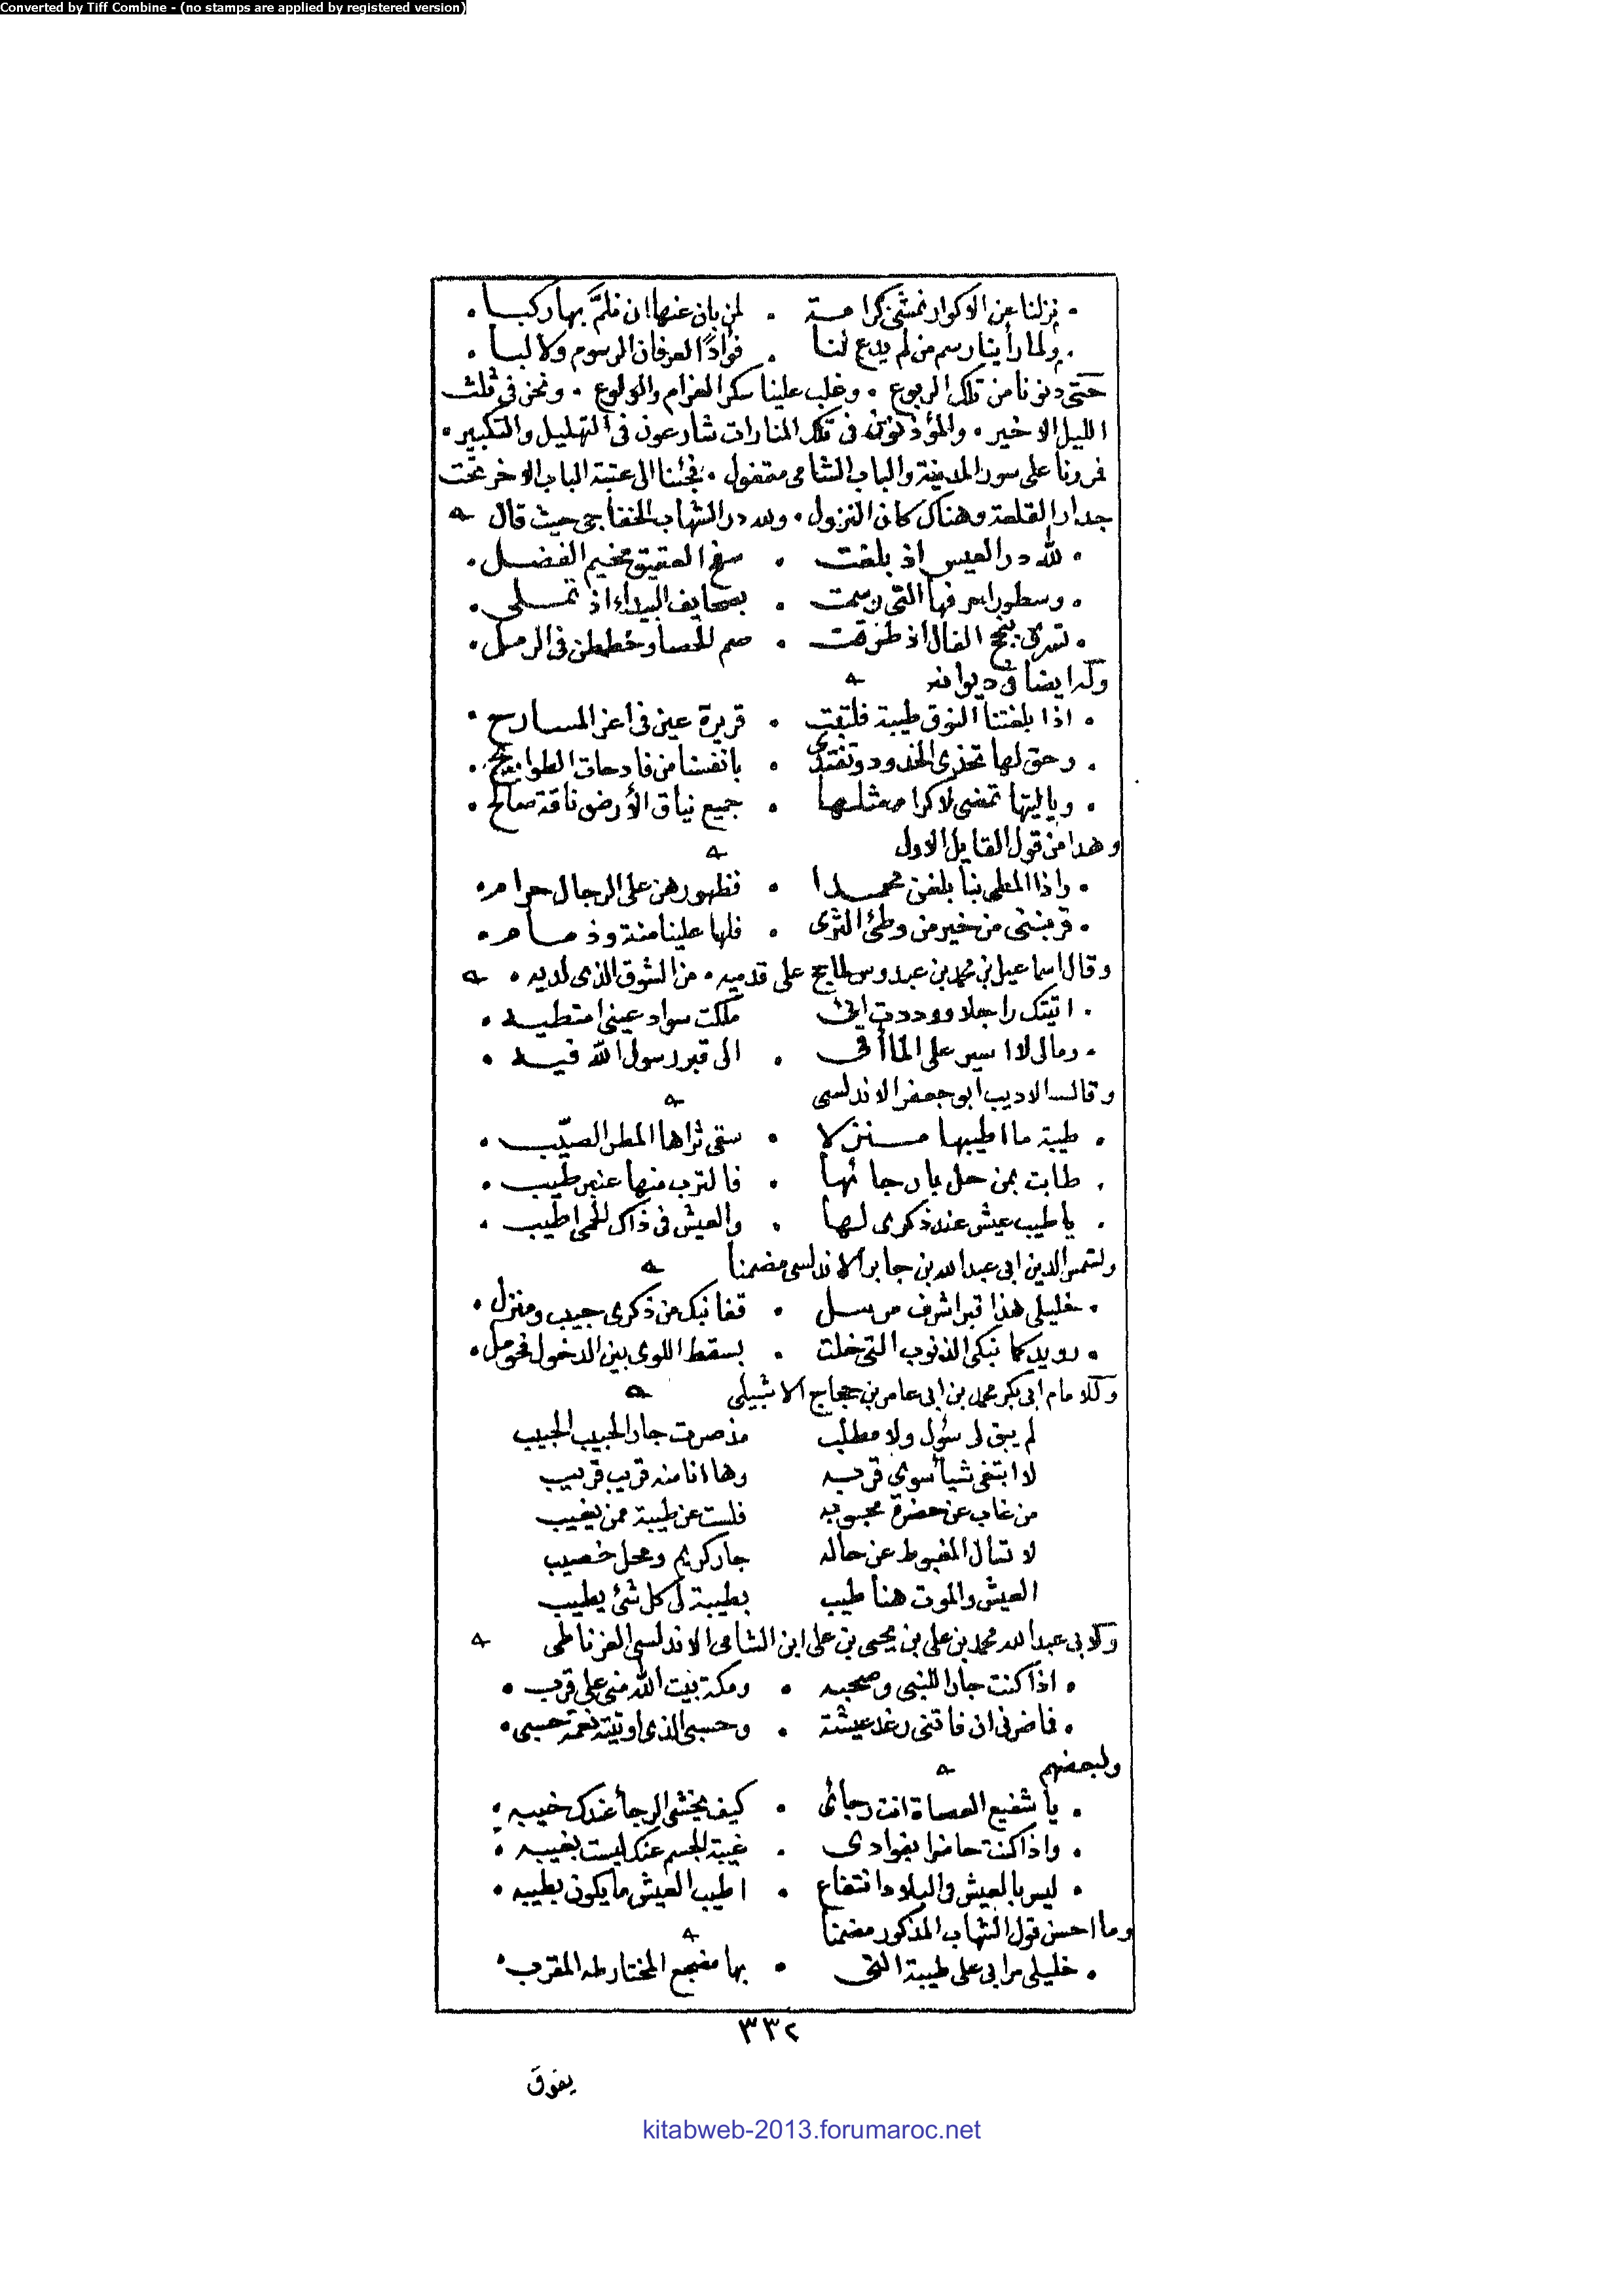 Converted by Tiff Combine - (no stamps are applied by registered version)
• نزلنا عن الاكوار نمشى كرامة • لمن بان عنها ان نلمَّ بها ركبا •
• ولما رأينا رسم من لم يدع لنا • فؤادًا لعرفان الرسوم ولا لبا •
حتى دنونا من تلك الربوع • وغلب علينا سكر الغرام والولوع • ونحن فى ثلث
الليل الاخير • والمؤذنون فى تلك المنارات شارعون فى التهليل والتكبير •
فمرونا على سور المدينة والباب الشامى مقفول • فجئنا الى عتبة الباب الاخر تحت
جدار القلعة وهناك كان النزول • ولله در الشهاب الخفاجى حيث قال
• لله در العيس اذ بلغت • سفح العقيق مخيم الفضل •
• وسطور احرفها التى رسمت • بصحايف البيداء اذ تملى •
• تسرى بنجح الفال اذ طرقت • صم الحصا وخططن فى الرمل •
وله ايضا فى ديوانه
• اذا بلغتنا النوق طيبة فلتقت • قريرة عين فى اعز المسارح •
• وحق لها تحذى الخدود وتفتدى • بانفسنا من فادحات الطوايح •
• وياليتها تمسى لاكرامثلها • جميع نياق الأرض ناقة صالح •
وهذا من قول القايل الاول
• واذا المطى بنا بلغن محمدا • فظهورهن على الرجال حرام •
• قربننى من خير من وطئ الثرى • فلها علينا منة وذمام •
وقال اسماعيل بن محمد بن عبدوس لما حج على قدميه • من الشوق الذى لديه •
• اتيتك راجلا ووددت انى ملكت سواد عينى امتطيه •
• ومالى لا اسير على المأقى • الى قبر رسول الله فيه •
وقال الاديب ابو جعفر الاندلسى
• طيبة ما اطيبها منزلا • سقى ثراها المطر الصيّب •
• طابت بمن حل بارجائها • فالترب منها عنبر طيب •
• يا طيب عيش عند ذكرى لها • والعيش فى ذاك الحمى اطيب •
ولشمس الدين ابى عبد الله بن جابر الاندلسى مضمنا
• خليلى هذا قبر اشرف مرسل • قفا نبك من ذكرى حبيب ومنزل •
• رويدكما نبكى الذنوب التى خلت • بسقط اللوى بين الدخول فحومل •
وللامام ابى بكر محمد بن ابى عامر بن حجاج الاشبيلى
لم يبق لى سؤل ولا مطلب مذ صرت جار الحبيب الحبيب
لا ابتغى شيأ سوى قربه وها انا منه قريب قريب
من غاب عن حضرة محبوبه فلست عن طيبة ممن يغيب
لا تسال المغبوط عن حاله جار كريم ومحل خصيب
العيش والموت هنا طيب بطيبة لى كل شئ يطيب
ولابى عبد الله محمد بن على بن يحيى بن على ابن الشامى الاندلسى الغرناطى
• اذا كنت جارا للنبى وصحبه • ومكة بيت الله منى على قرب •
• فما ضرنى ان فاتنى رغد عيشة • وحسبى الذى اوتيته نعمة حسبى •
ولبعضهم
• يا شفيع العصاة انت رجائى • كيف يخشى الرجأ عندك خيبه •
• واذا كنت حاضرا بفوادى • غيبة الجسم عنك ليست بغيبه •
• ليس بالعيش فى البلاد انتفاع • اطيب العيش ما يكون بطيبه •
وما احسن قول الشهاب المذكور مضمنا
• خليلى مرا بى على طيبة التى • بها مضجع المختار طه المقرب •
٣٣٢
يفوق
kitabweb-2013.forumaroc.net